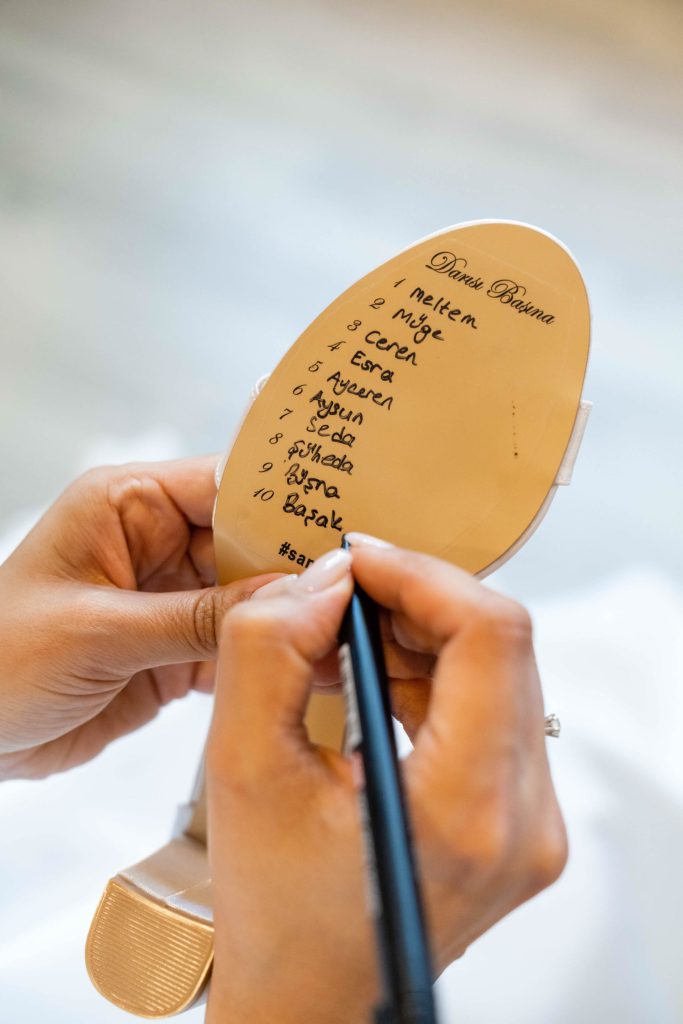 Darısı Başına
1 Meltem
2 Müge
3 Ceren
4 Esra
5 Ayceren
6 Aysun
7 Seda
8 Şüheda
9 Büşna
10 Başak